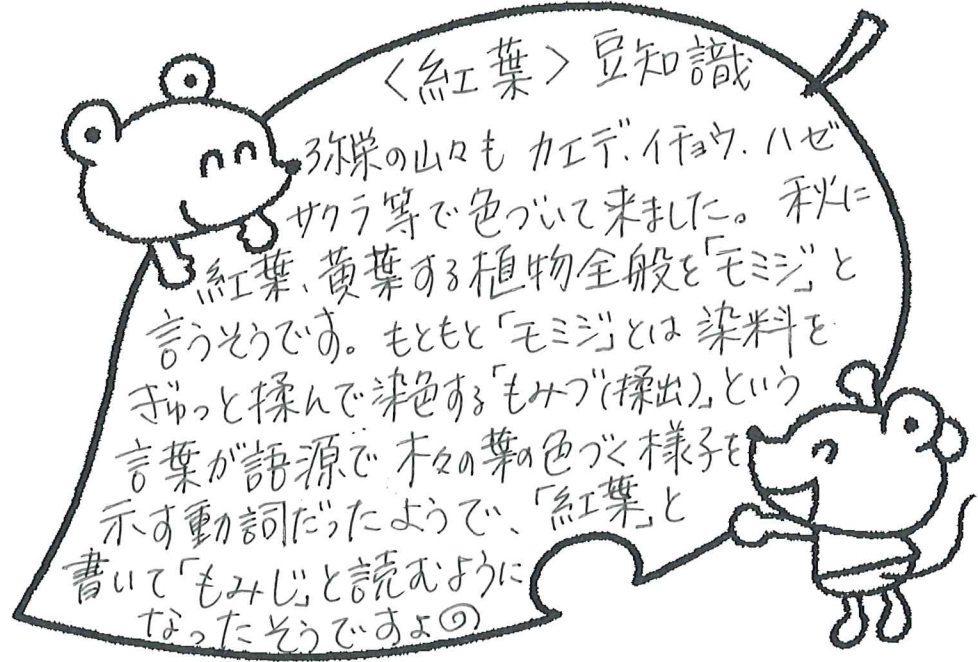 〈紅葉〉豆知識
弥栄の山々も カエデ、イチョウ、ハゼ
サクラ等で色づいて来ました。 秋に
紅葉、黄葉する植物全般を「モミジ」と
言うそうです。もともと「モミジ」とは 染料を
ぎゅっと揉んで染色する「もみづ(揉出)」という
言葉が語源で 木々の葉の色づく様子を
示す動詞だったようで、「紅葉」と
書いて「もみじ」と読むように
なったそうですよ